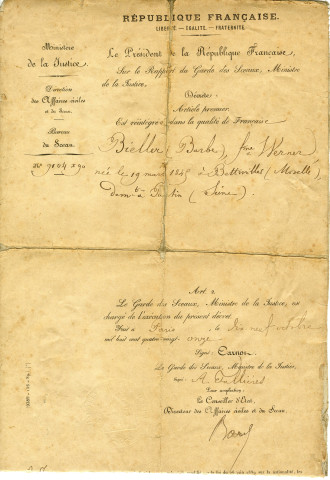 RÉPUBLIQUE FRANÇAISE.
LIBERTÉ — ÉGALITÉ — FRATERNITÉ
Ministère
de la Justice.
Direction
des Affaires civiles
et du Sceau.
Bureau
du Sceau.
Le Président de la République Française,
Sur le Rapport du Garde des Sceaux, Ministre
de la Justice,
Décrète:
Article premier.
Est réintégrée dans la qualité de Française
Bieller (Barbe), fme Werner
née le 19 mars à (Moselle)
domée à Pantin (Seine).
Art. 2
Le Garde des Sceaux, Ministre de la Justice, est
chargé de l'exécution du présent décret
Fait à Paris le dix neuf octobre
mil huit cent quatre-vingt onze
Signé: Carnot.
Le Garde des Sceaux, Ministre de la Justice,
Signé: A. Fallières
Pour ampliation:
Le Conseiller d'État
Directeur des Affaires civiles et du Sceau,